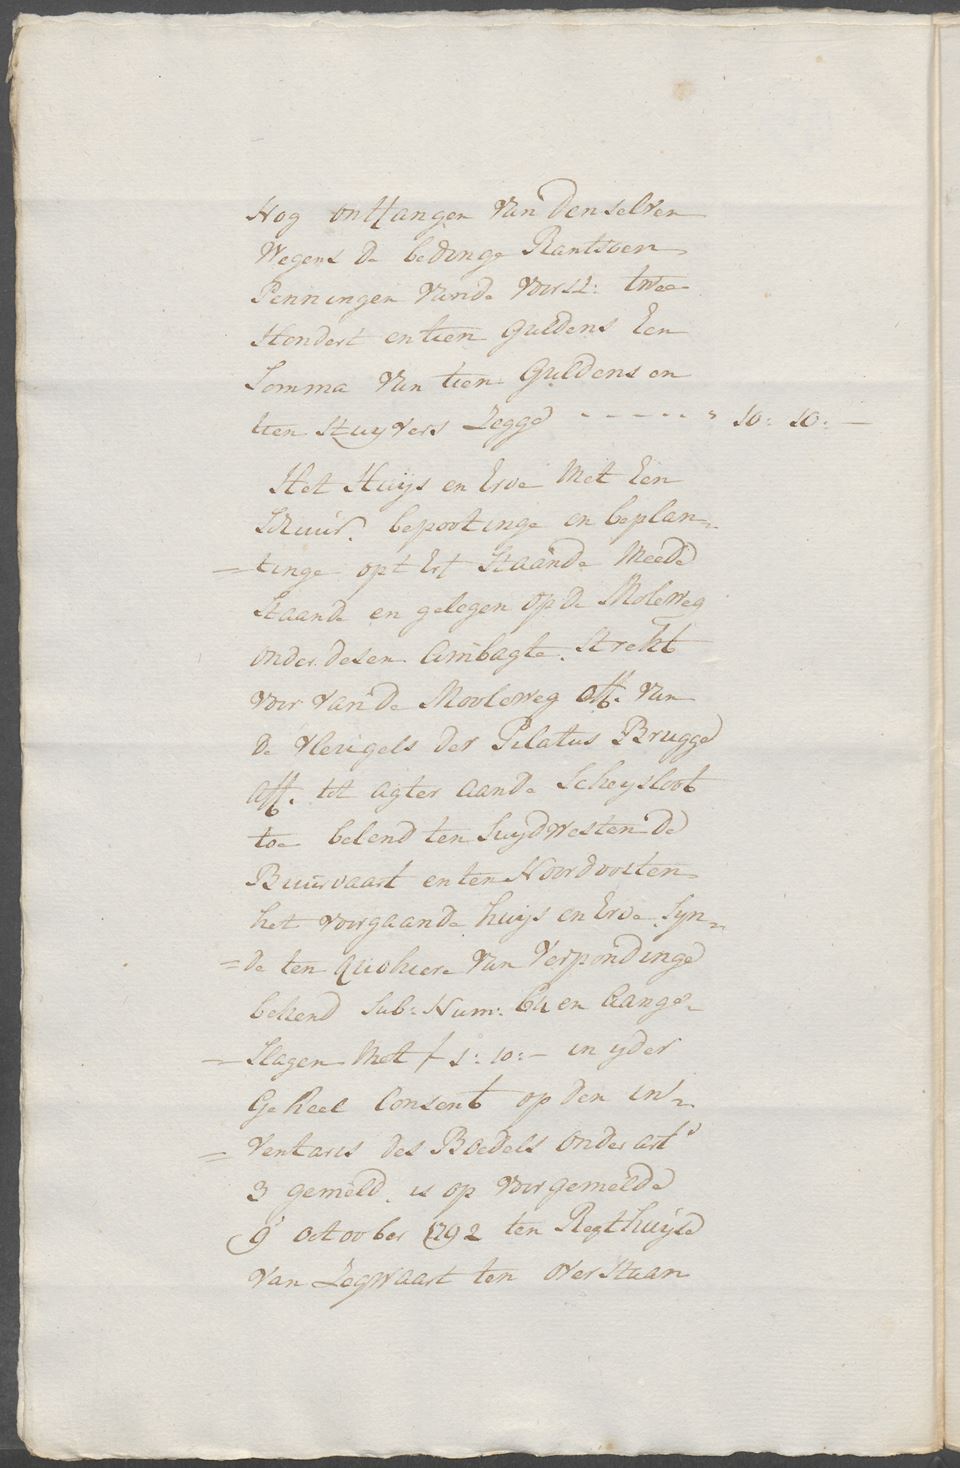 Nog ontfangen van denselven
Wegens de bedinge Rantsoen
Penningen vande voorsz: twee
Hondert en tien Guldens Een
Somma van tien Guldens en
tien Stuyvers Zegge - - - - - " 10: 10: —
Het Huijs en Erve Met Een
Schuur, bepootinge en beplan„
= tinge opt Erf Staande Meede
Staande en gelegen op de Moleweg
onder desen Ambagte. Strekt
voor van de Mooleweg off. van
de vleugels der Pilatus Brugge
aff. tot agter aande Scheysloot
toe belend ten Suydwesten de
Buurvaart en ten Noordoosten
het voorgaande huijs en Erve Syn„
= de ten quohiere van Verpondinge
bekend Sub: Num: 64 en Aange„
= Slagen Met f 1: 10: — in yder
Geheel Consent op den in„
= ventaris des Boedels onder art:
3 gemeld. is op voorgemelde
9 october 1792 ten Regthuijse
van Zegwaart ten overstaan